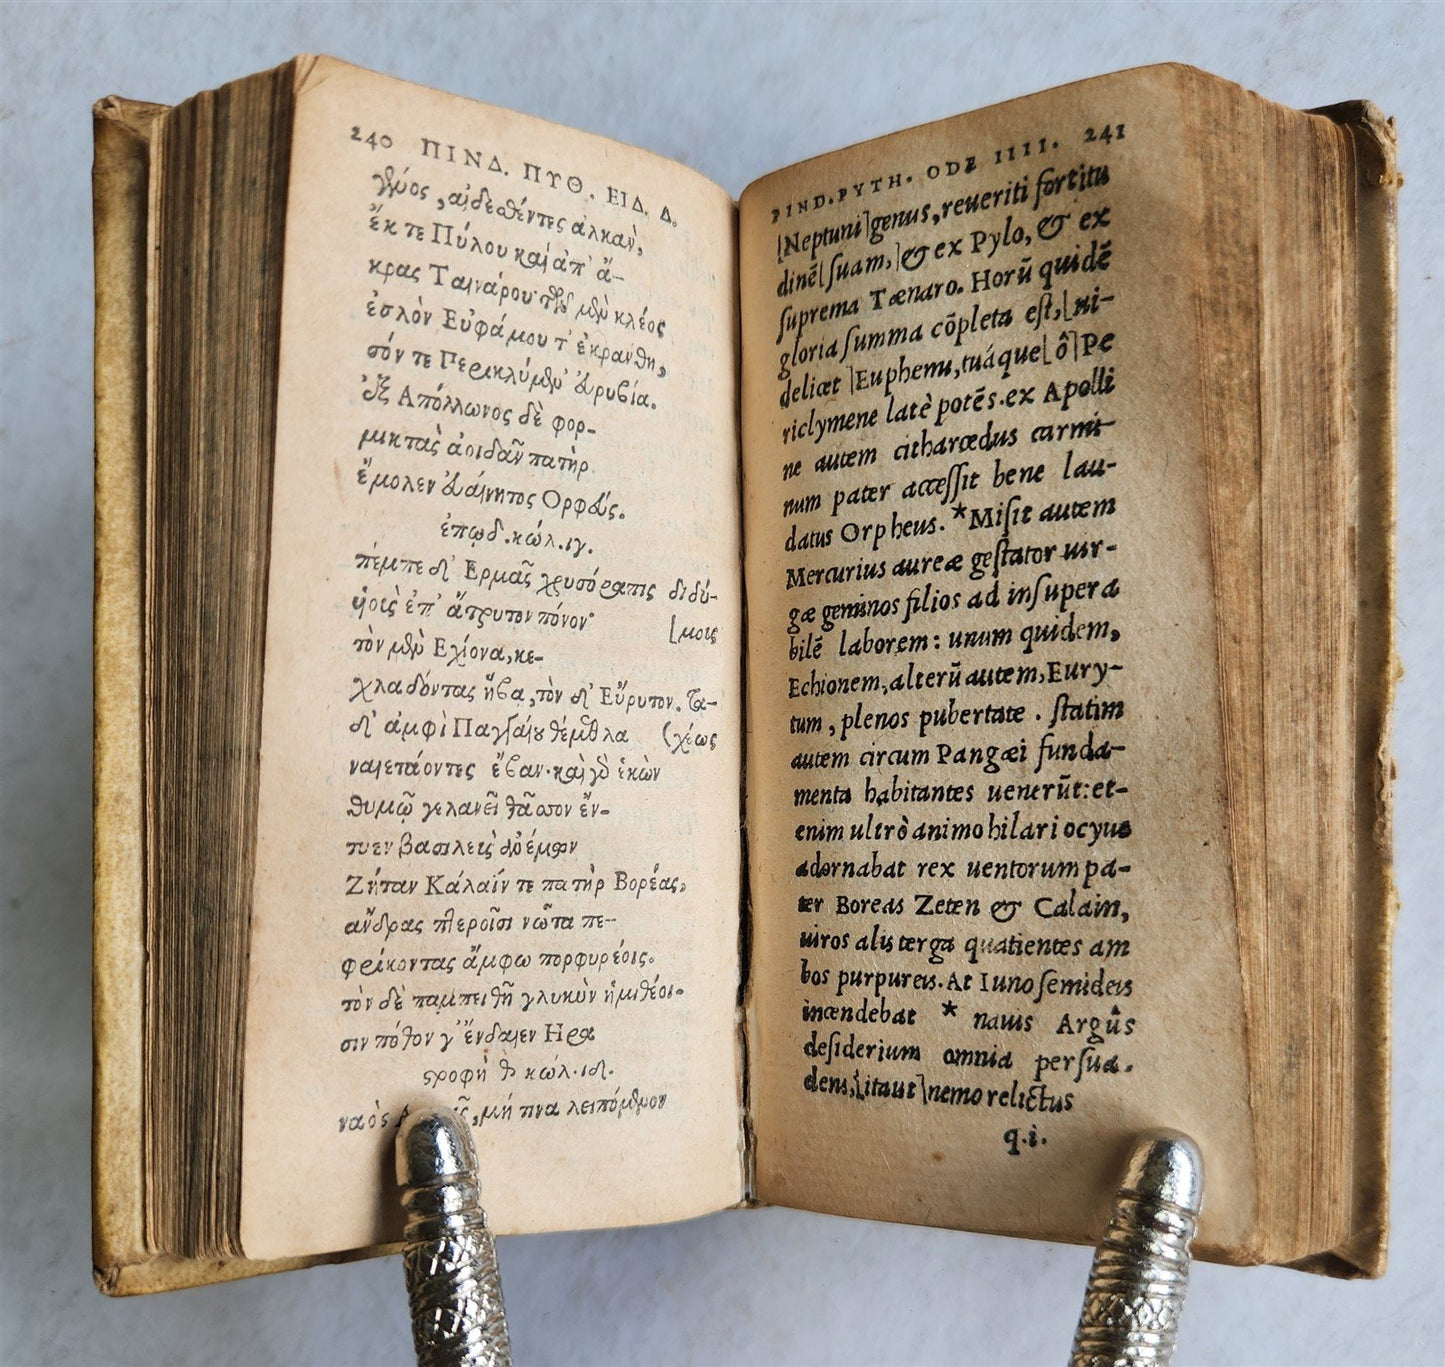 240 ΠΙΝΔ. ΠΥΘ. ΕΙΔ. Δ.
γένος, αἰδεσθέντες ἀλκὰν,
ἔκ τε Πύλου καὶ ἀπ' ἄ-
κρας Ταινάρου· τῶν μὲν κλέος
ἐσλὸν Εὐφάμου τ' ἐκράνθη,
σόν τε Περικλύμεν' εὐρυβία.
ἐξ Ἀπόλλωνος δὲ φορ-
μικτὰς ἀοιδᾶν πατὴρ
ἔμολεν εὐαίνητος Ὀρφεύς.
ἐπῳδ. κώλ. ιγ.
πέμπε δ' Ἑρμᾶς χρυσόραπις διδύ-
ὑοὺς ἐπ' ἄτρυτον πόνον· [μοις
τὸν μὲν Ἐχίονα, κε-
χλαδόντας ἥβᾳ, τὸν δ' Εὔρυτον. τα-
δ' ἀμφὶ Παγγαίου θέμεθλα (χέως
ναιετάοντες ἔβαν. καὶ γὸ ἑκὼν
θυμῷ γελανεῖ θᾶσσον ἔν-
τυεν βασιλεὺς ἀνέμων
Ζήταν Κάλαΐν τε πατὴρ Βορέας,
ἄνδρας πτεροῖσι νῶτα πε-
φρίκοντας ἄμφω πορφυρέοις.
τὸν δὲ παμπειθῆ γλυκὺν ἡμιθέοι-
σιν πόθον γ' ἔνδαιεν Ἥρα
στροφὴ θ κώλ. ιδ.
ναὸς μή τινα λειπόμενον
PIND. PYTH. ODE IIII. 241
[Neptuni] genus, reueriti fortitu
dinē [suam,] & ex Pylo, & ex
suprema Tænaro. Horū quidē
gloria summa cōpleta est, [ui-
delicet] Euphemi, tuáque [ô] Pe
riclymene latè potēs. ex Apolli
ne autem citharœdus carmi-
num pater accessit bene lau-
datus Orpheus. *Misit autem
Mercurius aureæ gestator uir-
gæ geminos filios ad insupera
bilē laborem: unum quidem,
Echionem, alterū autem, Eury-
tum, plenos pubertate. statim
autem circum Pangæi funda-
menta habitantes uenerūt: et-
enim ultrò animo hilari ocyus
adornabat rex uentorum pa-
ter Boreas Zeten & Calain,
uiros alis terga quatientes am
bos purpureis. At Iuno semideis
incendebat * nauis Argûs
desiderium omnia persua-
dens, [itaut] nemo relictus
q.i.